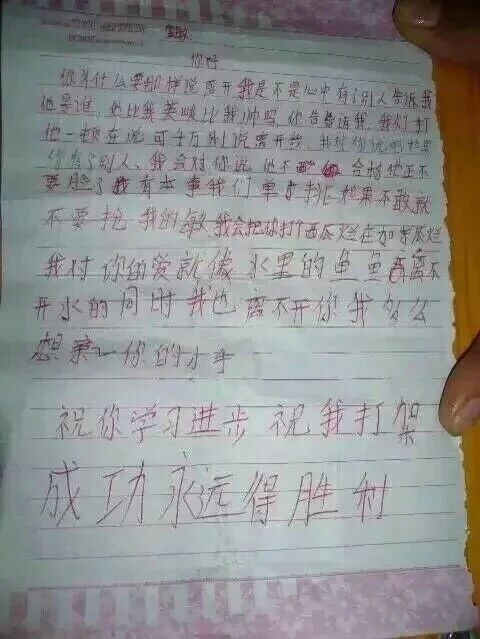 敏
你好
你为什么要那样说离开我是不是心中有了别人告诉我
他是谁，他比我英峻比我帅吗 你告诉我，我们打
他一顿在说可千万别说离开我，我对你说啊如果
你有了别人，我会对你说他不 合格他正不
要脸了我有本事我们单打挑如果不敢就
不要抢我的敏我会把你打个西瓜烂在加南瓜烂
我对你的爱就像水里的鱼鱼 离不
开水的同时我也离不开你我多么
想亲一你的小手
祝你学习进步祝我打架
成功永远得胜利